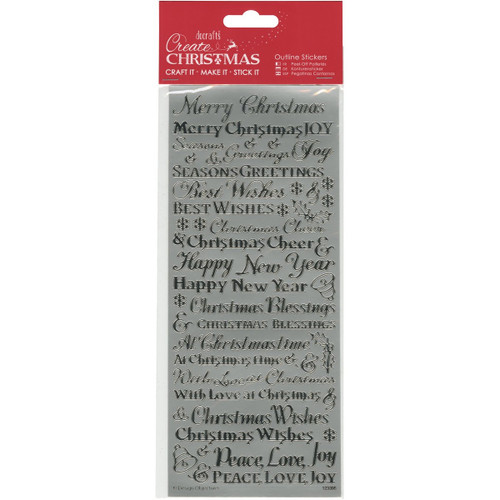 docrafts
Create
CHRISTMAS
CRAFT IT · MAKE IT · STICK IT
Outline Stickers
Merry Christmas
Merry Christmas JOY
Seasons & &
& Greetings Joy
SEASONS GREETINGS
Best Wishes &
BEST WISHES
Christmas Cheer
& Christmas Cheer &
Happy New Year
Happy New Year
Christmas Blessings
& CHRISTMAS BLESSINGS
At Christmastime
At Christmas time &
With Love at Christmas
With Love at Christmas &
& Christmas Wishes
Christmas Wishes &
& Peace, Love, Joy
PEACE, LOVE, JOY